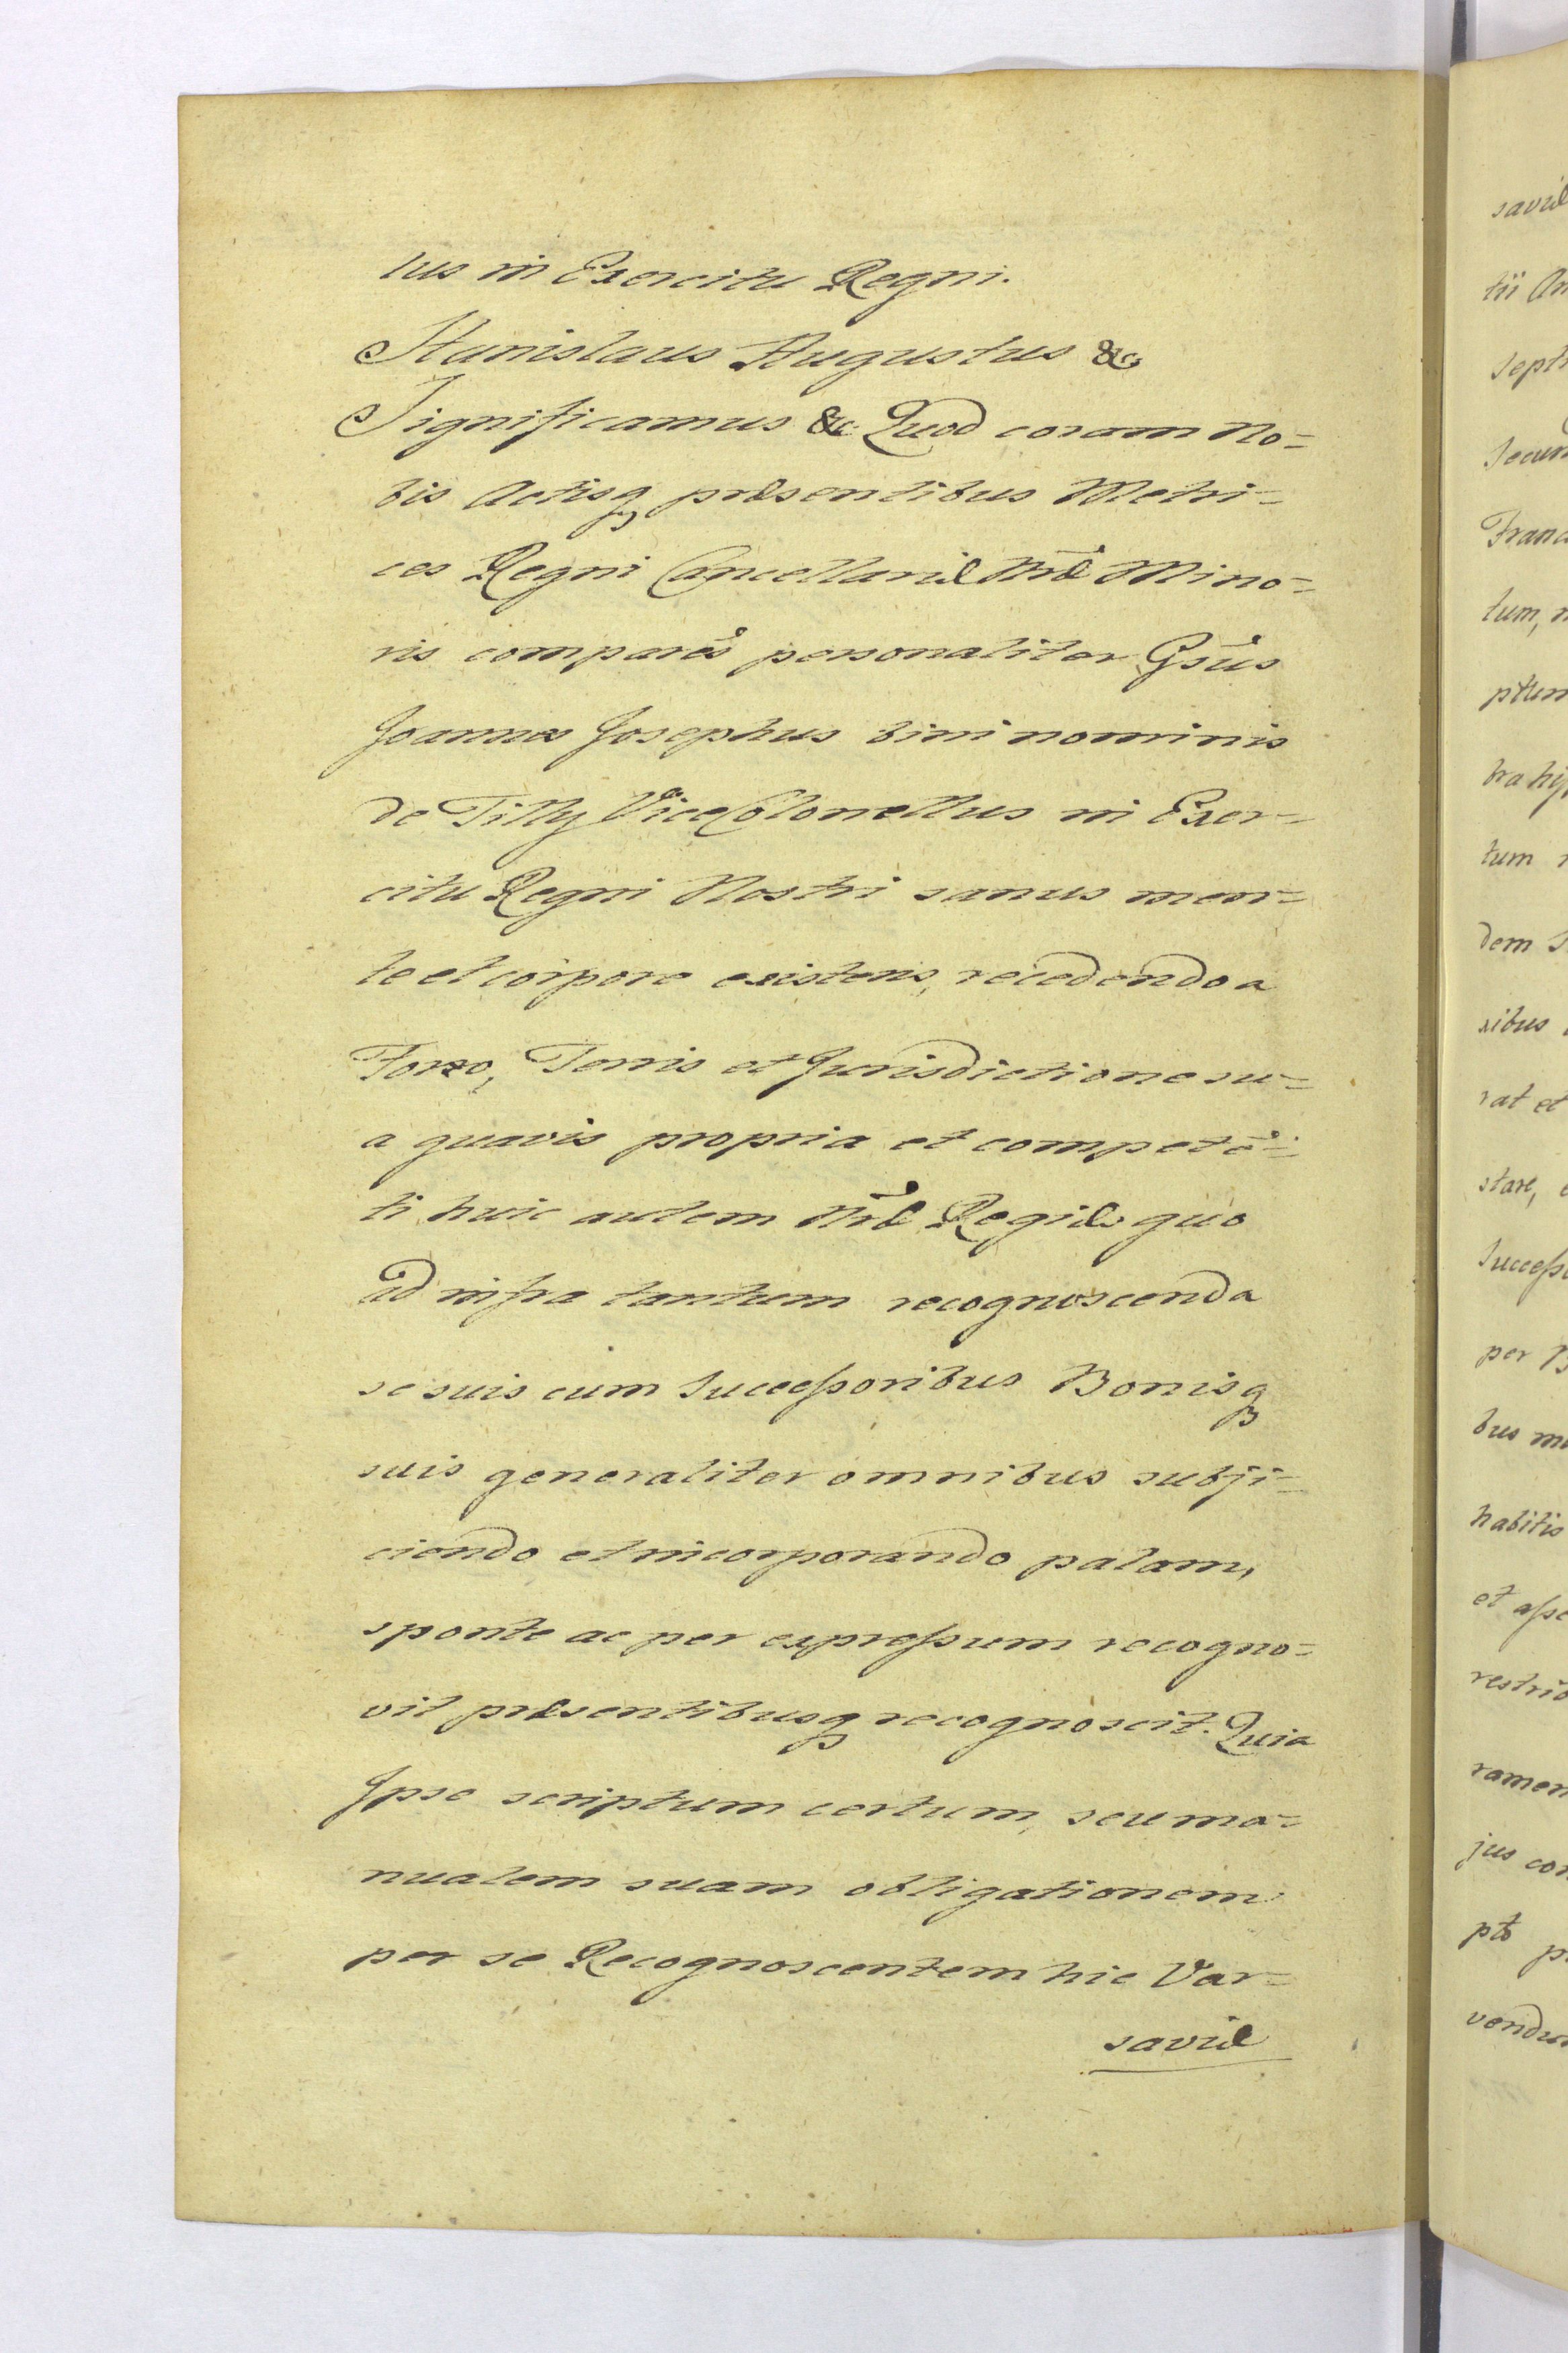 lus in Exercitu Regni.
Stanislaus Augustus &c
Significamus &c Quod coram No=
bis Actisq̃ præsentibus Metri=
ces Regni Cancellariæ Nr̃æ Mino=
ris compares̃ personaliter Gs̃us
Joannes Josephus bini nominis
de Tilly ViceColonellus in Exer=
citu Regni Nostri sanus men=
te et corpore existens, recedendo a
Foro, Terris et Jurisdictione su=
a quavis propria et competẽ=
ti huic autem Nr̃æ Regiæ quo
ad infra tantum recognoscenda
se suis cum Successoribus Bonisq̃
suis generaliter omnibus subji=
ciendo et incorporando palam,
sponte ac per expressum recogno=
vit præsentibusq̃ recognoscit. Quia
Ipse scriptum certum, seu ma=
nualem suam obligationem
per se Recognoscentem hic Var=
saviæ
saviæ
tii
Sept
Secun
Franc
tum,
ptum
tra hyp
tum
dem
xibus
rat et
stare,
Success
per
bus
habitis
et asse
restrib
ramen
jus con
pto
vendu